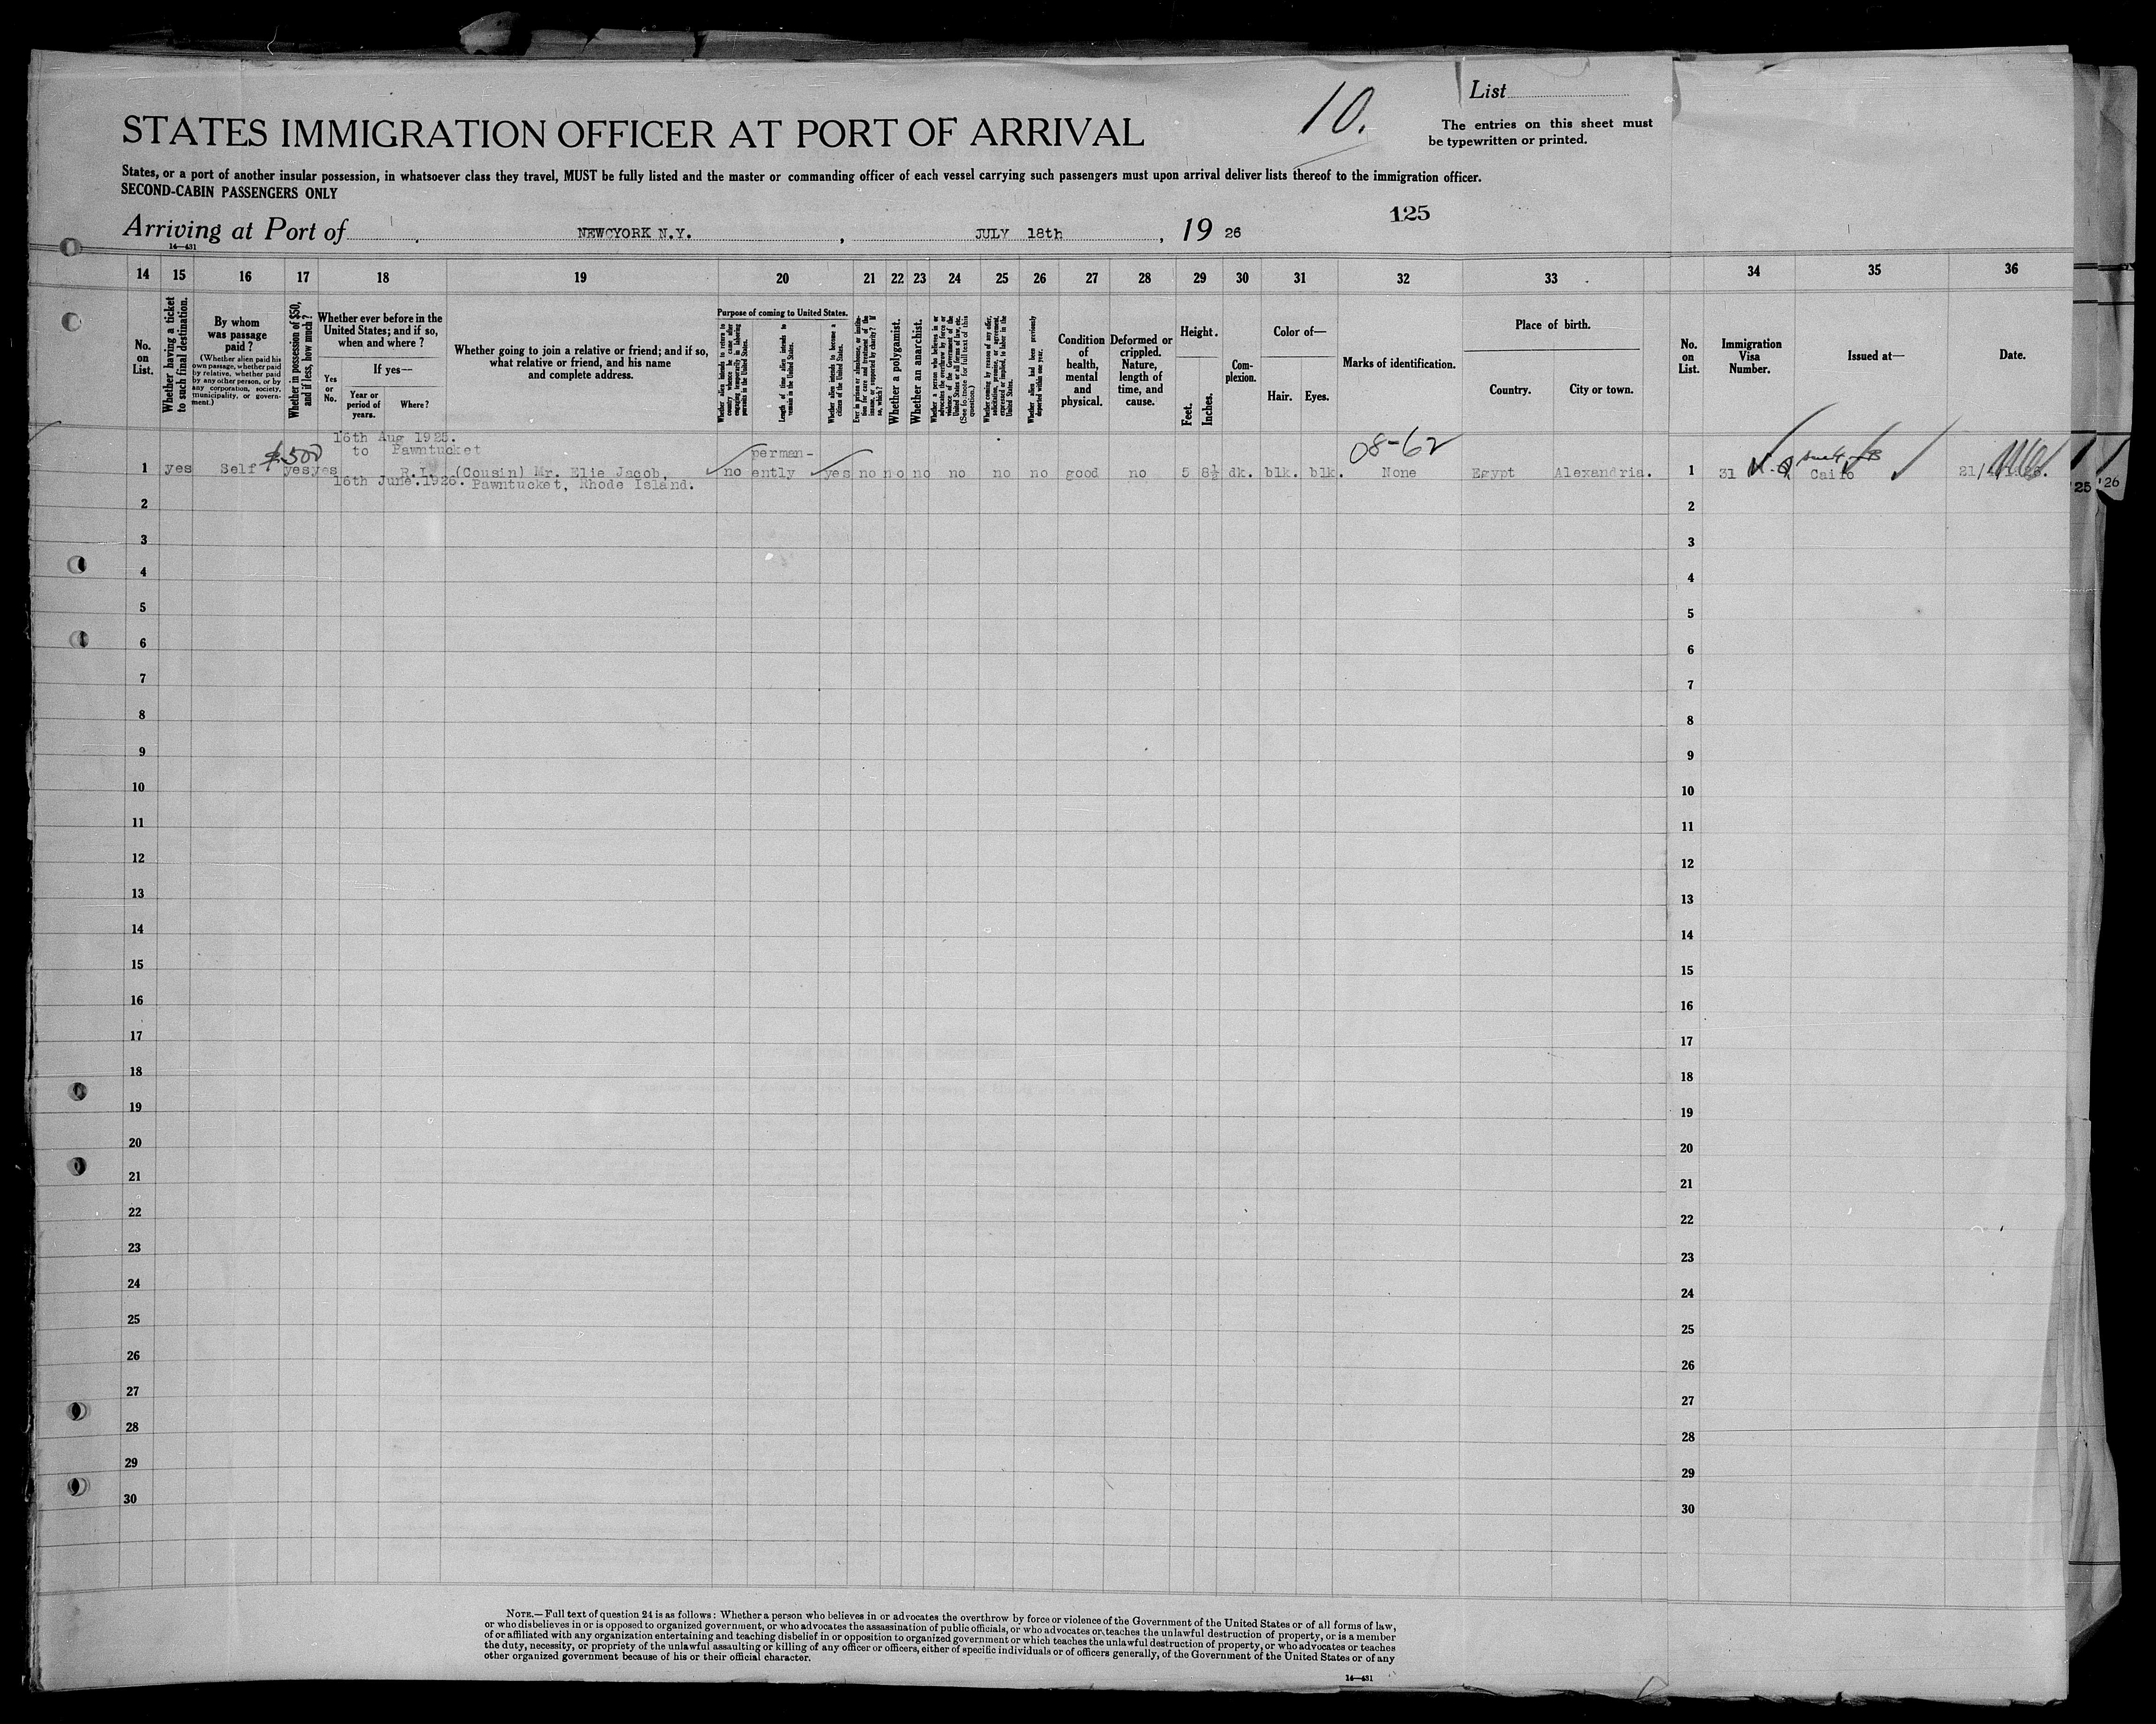 List
10.
The entries on this sheet must
be typewritten or printed.
STATES IMMIGRATION OFFICER AT PORT OF ARRIVAL
States, or a port of another insular possession, in whatsoever class they travel, MUST be fully listed and the master or commanding officer of each vessel carrying such passengers must upon arrival deliver lists thereof to the immigration officer.
SECOND-CABIN PASSENGERS ONLY
125
Arriving at Port of NEWCYORK N.Y. , JULY 18th , 19 26
14—431
14 15 16 17 18 19 20 21 22 23 24 25 26 27 28 29 30 31 32 33 34 35 36
No. on List.
Whether having a ticket to such final destination.
By whom was passage paid?
(Whether alien paid his own passage, whether paid by relative, whether paid by any other person, or by any corporation, society, municipality, or government.)
Whether in possession of $50, and if less, how much?
Whether ever before in the United States; and if so, when and where?
Yes or No.
If yes—
Year or period of years.
Where?
Whether going to join a relative or friend; and if so, what relative or friend, and his name and complete address.
Purpose of coming to United States.
Whether alien intends to return to country whence he came after engaging temporarily in laboring pursuits in the United States.
Length of time alien intends to remain in the United States.
Whether alien intends to become a citizen of the United States.
Ever in prison or almshouse, or institution for care and treatment of the insane, or supported by charity? If so, which?
Whether a polygamist.
Whether an anarchist.
Whether a person who believes in or advocates the overthrow by force or violence of the Government of the United States or all forms of law, etc. (See footnote for full text of this question.)
Whether coming by reason of any offer, solicitation, promise, or agreement, expressed or implied, to labor in the United States.
Whether alien had been previously deported within one year.
Condition of health, mental and physical.
Deformed or crippled. Nature, length of time, and cause.
Height.
Feet.
Inches.
Complexion.
Color of—
Hair.
Eyes.
Marks of identification.
Place of birth.
Country.
City or town.
No. on List.
Immigration Visa Number.
Issued at—
Date.
16th Aug 1925.
to Pawntucket
perman-
08-62
$500
1 yes Self yes yes R.I. (Cousin) Mr. Elie Jacob, no ently yes no no no no no no good no 5 8½ dk. blk. blk. None Egypt Alexandria. 1 31 Cairo
16th June.1926. Pawntucket, Rhode Island.
25 '26
2 2
3 3
4 4
5 5
6 6
7 7
8 8
9 9
10 10
11 11
12 12
13 13
14 14
15 15
16 16
17 17
18 18
19 19
20 20
21 21
22 22
23 23
24 24
25 25
26 26
27 27
28 28
29 29
30 30
NOTE.—Full text of question 24 is as follows: Whether a person who believes in or advocates the overthrow by force or violence of the Government of the United States or of all forms of law,
or who disbelieves in or is opposed to organized government, or who advocates the assassination of public officials, or who advocates or teaches the unlawful destruction of property, or is a member
of or affiliated with any organization entertaining and teaching disbelief in or opposition to organized government or which teaches the unlawful destruction of property, or who advocates or teaches
the duty, necessity, or propriety of the unlawful assaulting or killing of any officer or officers, either of specific individuals or of officers generally, of the Government of the United States or of any
other organized government because of his or their official character.
14—431